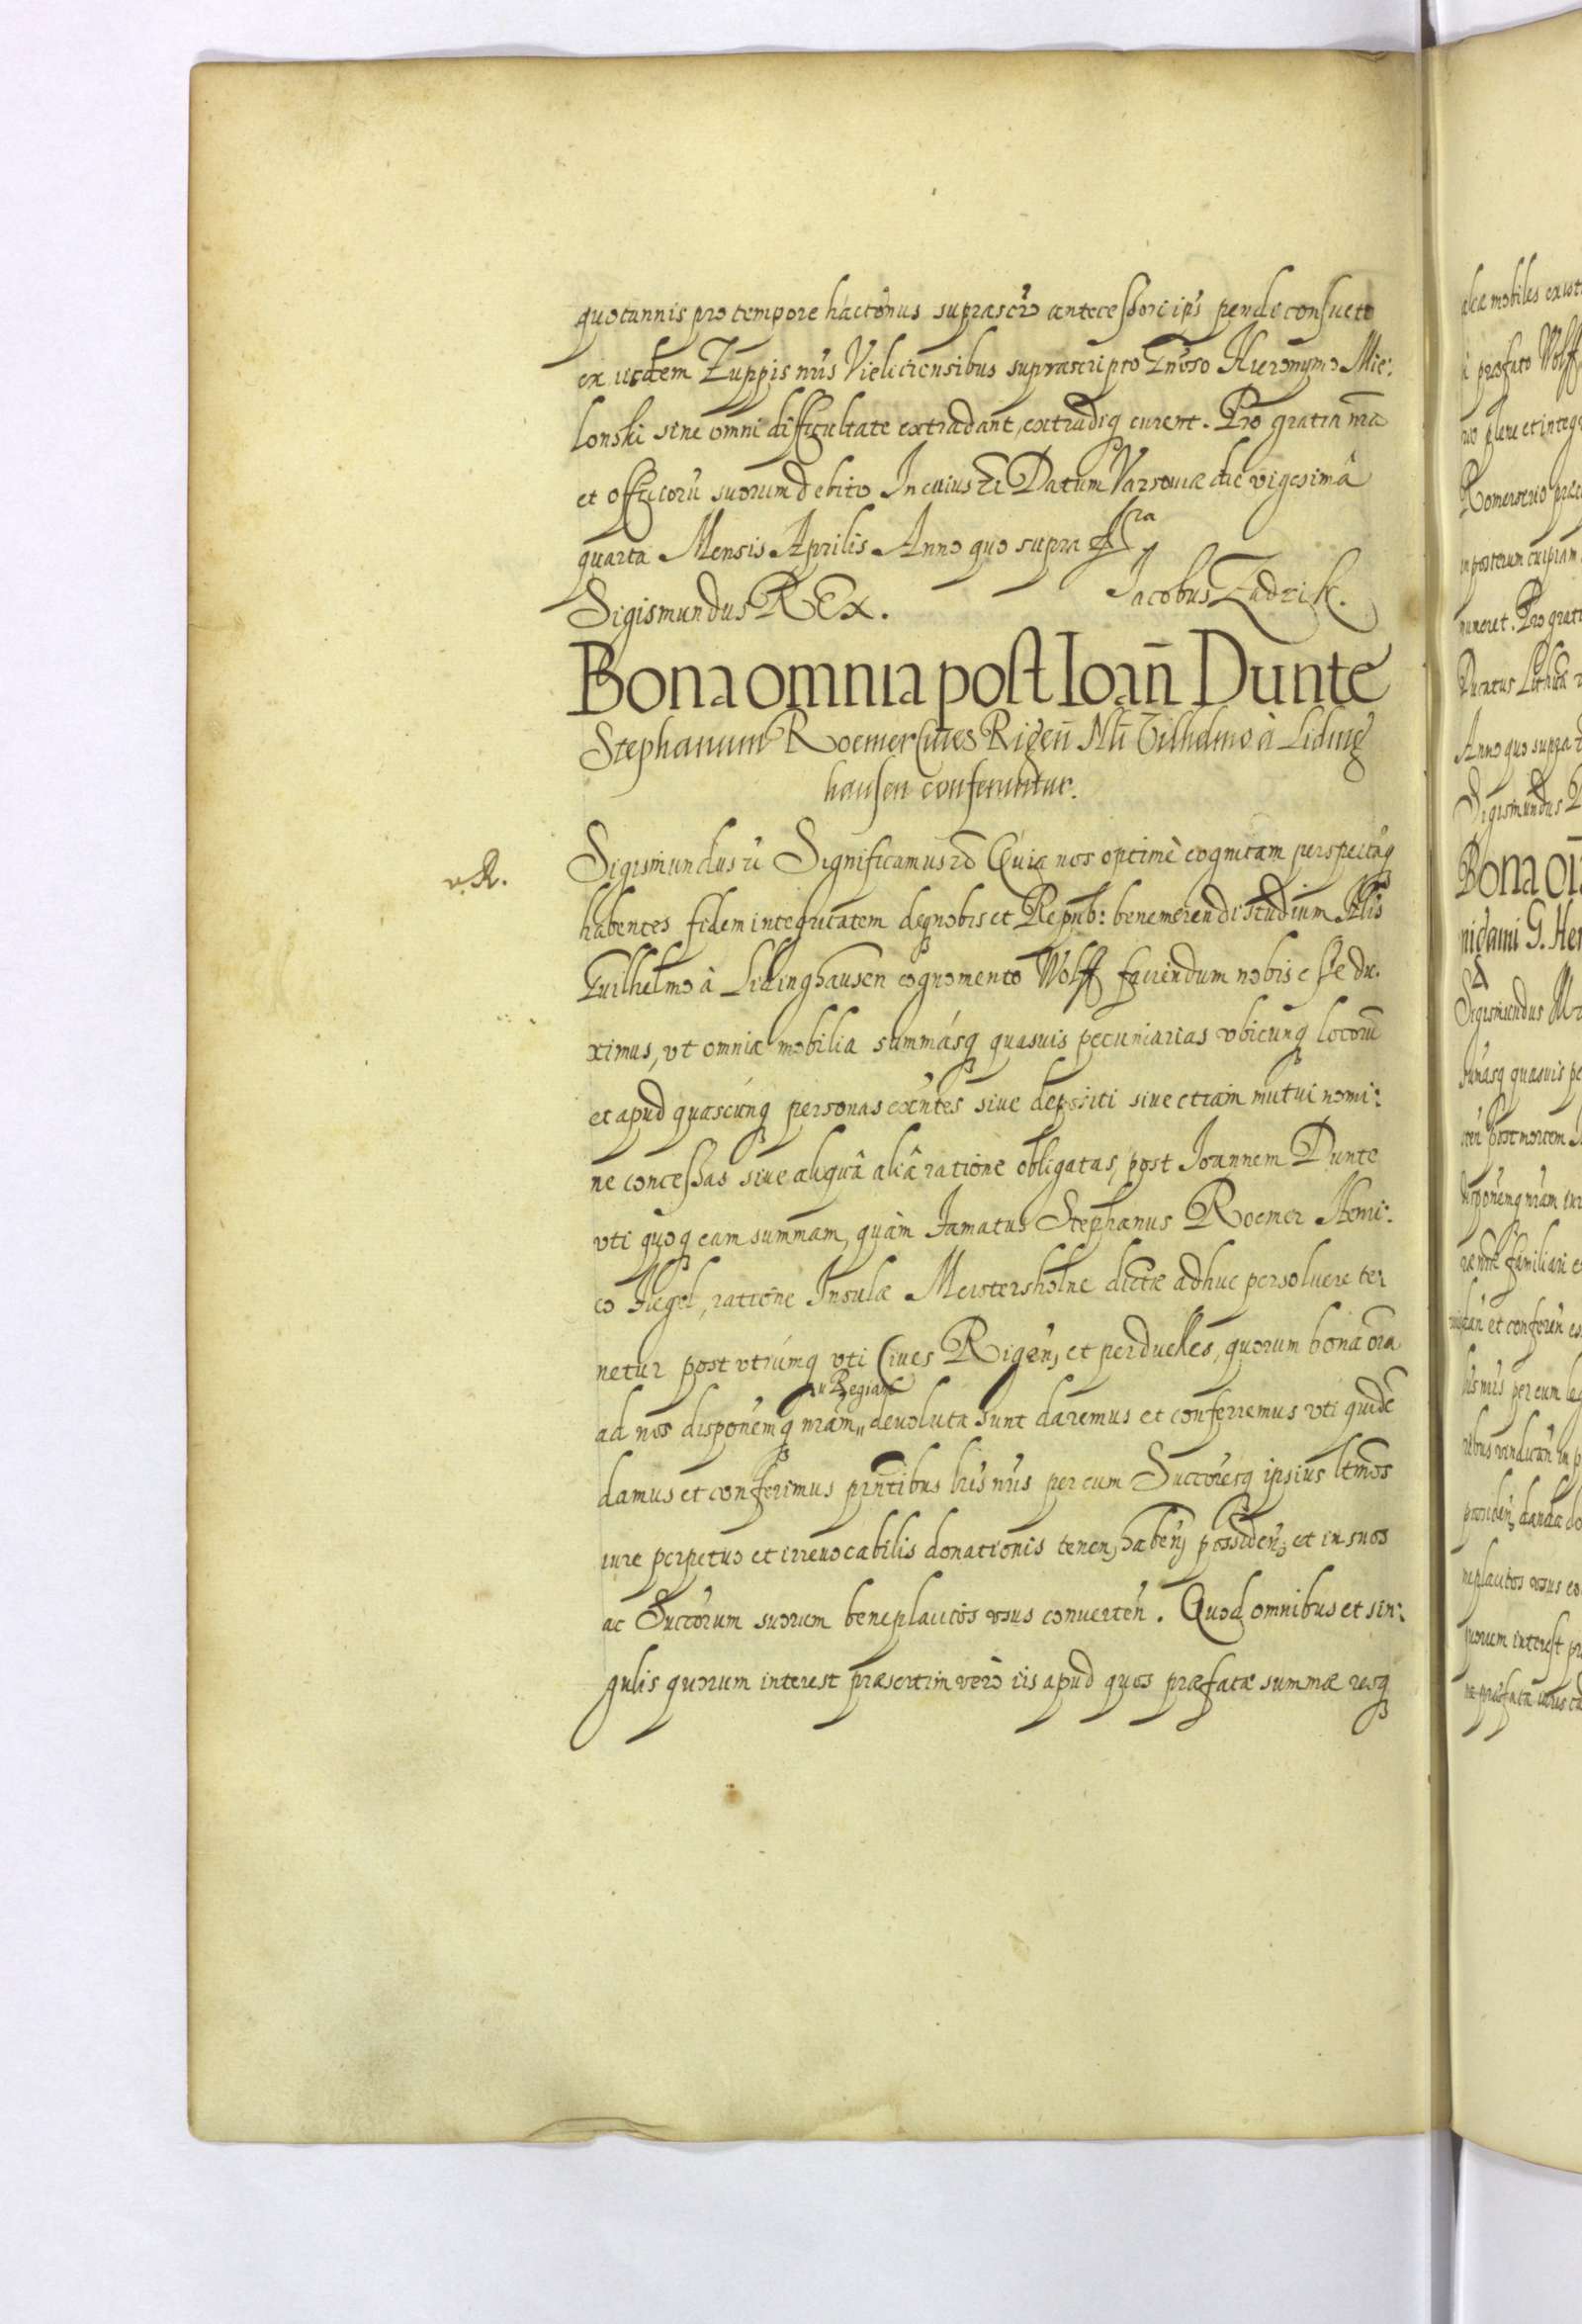 quotannis pro tempore hactenus suprascr̃o antecessori ip̃s pendi consueto
ex iisdem Zuppis nr̃is Vieliciensibus suprascripto Gnõso Hieronymo Mie:
lonski sine omni difficultate extradant, extradiq curent. Pro gratia nr̃a
et officiorũ suorum debito In cuius rẽi Datum Varsouiæ die vigesimâ
quarta Mensis Aprilis Anno quo supra
Sigismundus REx. Jacobus Zadzik.
Bona omnia post Ioañ Dunte
Stephanum Roemer Ciues Rigeñ Nli Vilhelmo à Liding
hausen conferuntur.
v. R.
Sigismundus Significamus Quia nos optimè cognitam perspectáq
habentes fidem integritatem deq nobis et Repub: benemerendi studium Nlis
Guilhelmo à Lidinghausen cognomento Wolff faciendum nobis esse du.
ximus, vt omnia mobilia summásq quasuis pecuniarias vbicunq locorũ
et apud quascunq personas exñtes siue depositi siue etiam mutui nomi:
ne concessas siue aliquâ aliâ ratione obligatas, post Joannem Dunte
vti quoq eam summam, quàm Famatus Stephanus Roemer Henri:
co Fiegel, ratione Insulæ Meistersholne dictæ adhuc persoluere te:
netur post vtrúmq vti Ciues Rigeñ, et perduelles, quorum bona oĩa
ad nos disponẽmq nr̃am „ Regiam devoluta sunt daremus et conferremus vti quidẽ
damus et conferimus pr̃ntibus lr̃is nr̃is per eum Succoresq ipsius ltmos
iure perpetuo et irreuocabilis donationis tenen, habeñ, possideñ, et in suos
ac Succorum suorum beneplacitos vsus conuerteñ. Quod omnibus et sin:
gulis quorum interest præsertim verò iis apud quos præfatæ summæ resq